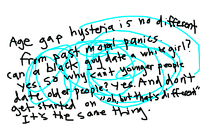 Age gap hysteria is no different
from past moral panics
can a black guy date a white girl?
yes. so why can't younger people
date older people? Yes. And don't
get started on "oh, but that's different"
It's the same thing